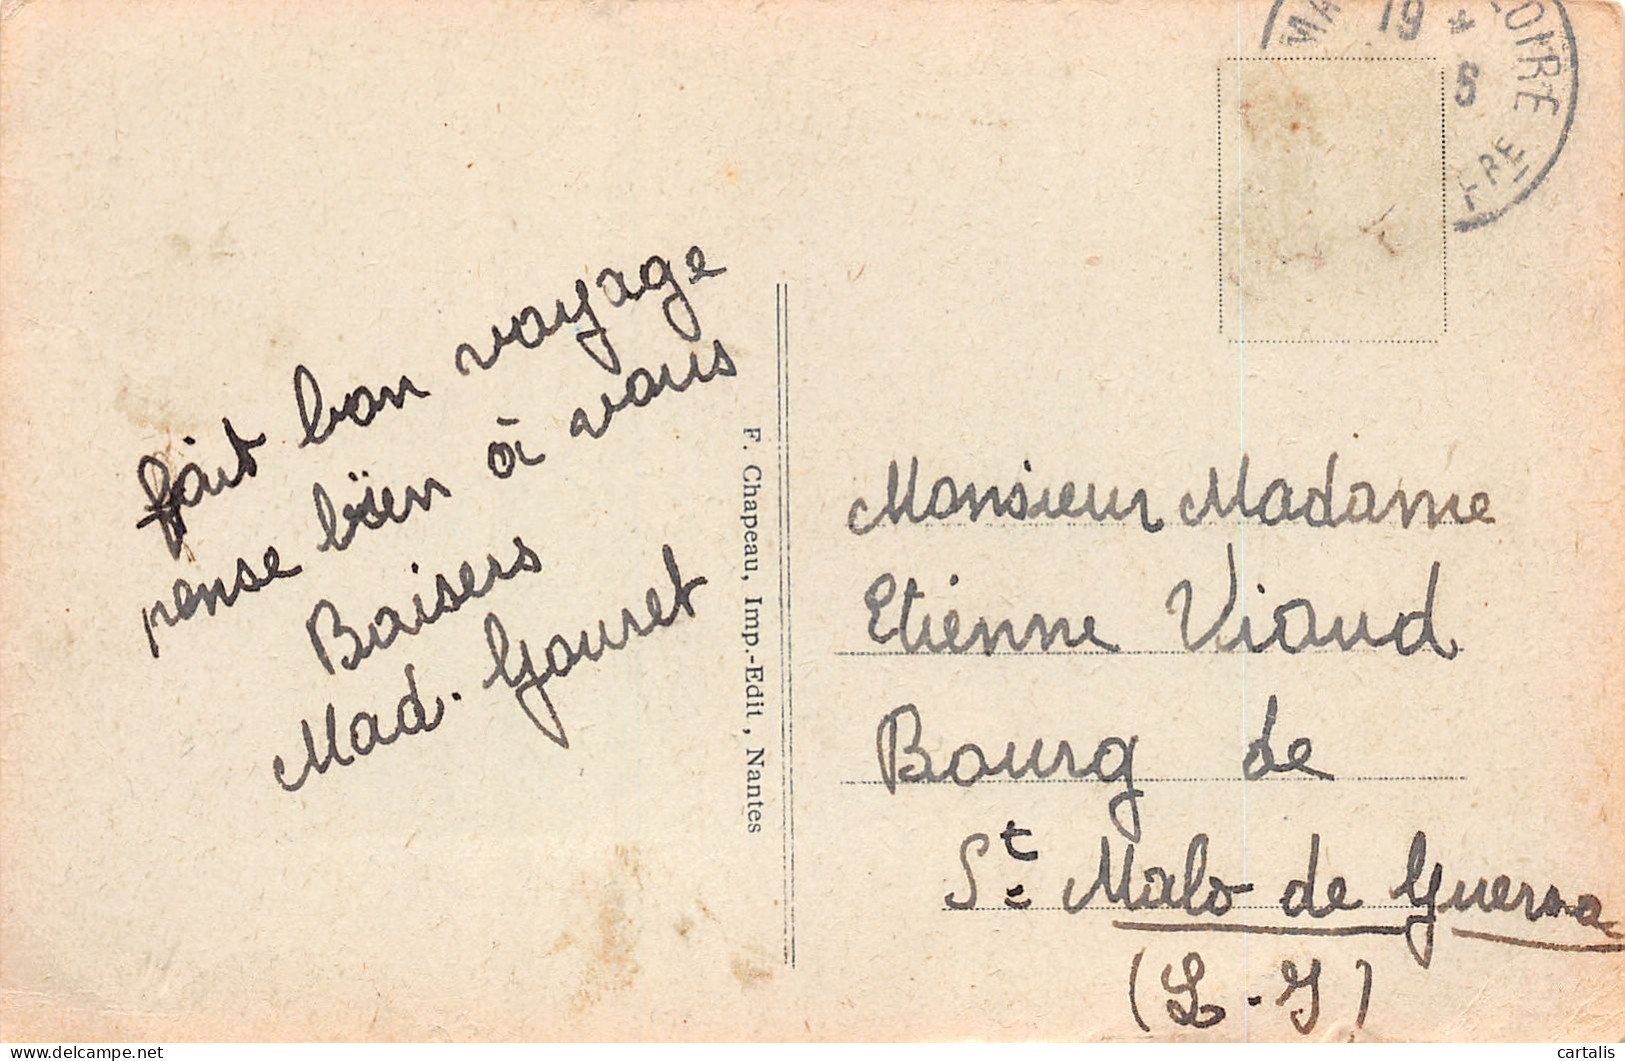 fait bon voyage
pense bien à vous
Baisers
Mad. Gouret
F. Chapeau, Imp.-Edit, Nantes
19 * OIRE
5
Monsieur Madame
Etienne Viaud
Bourg de
St Malo de Guersac
(L-I)
cartalis
delcampe.net